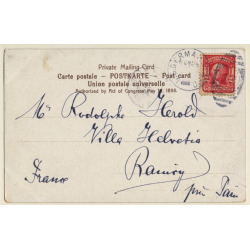 Private Mailing-Card
Carte postale – POSTKARTE – Post card
Union postale universelle
Authorized by Act of Congress, May 19. 1898.
Mr Rodolphe Herold
Villa Helvetia
Raincy
France
près Paris